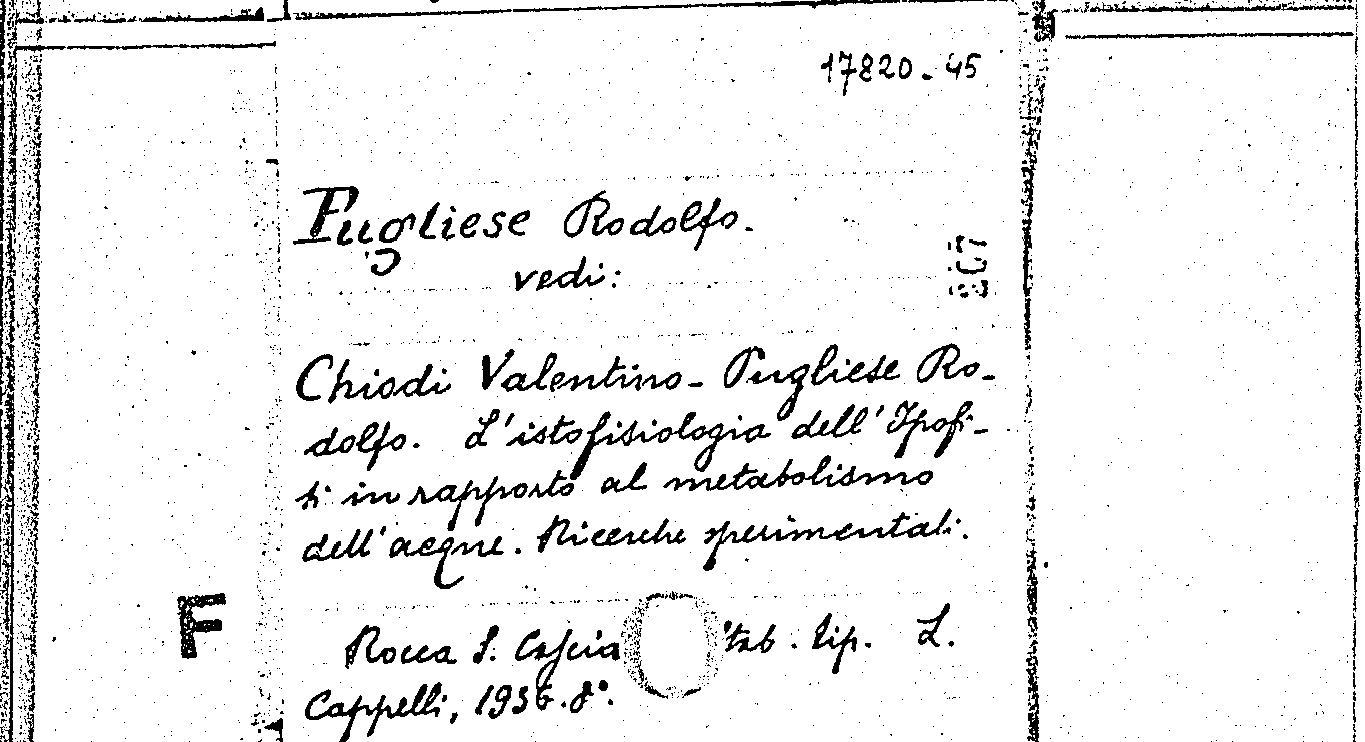 17820-45
Pugliese Rodolfo.
vedi:
Chiodi Valentino - Pugliese Ro-
dolfo. L'istofisiologia dell'Ipofi-
si in rapporto al metabolismo
dell'acque. Ricerche sperimentali.
F
Rocca S. Casciano tab. tip. L.
Cappelli, 1936. 8°.